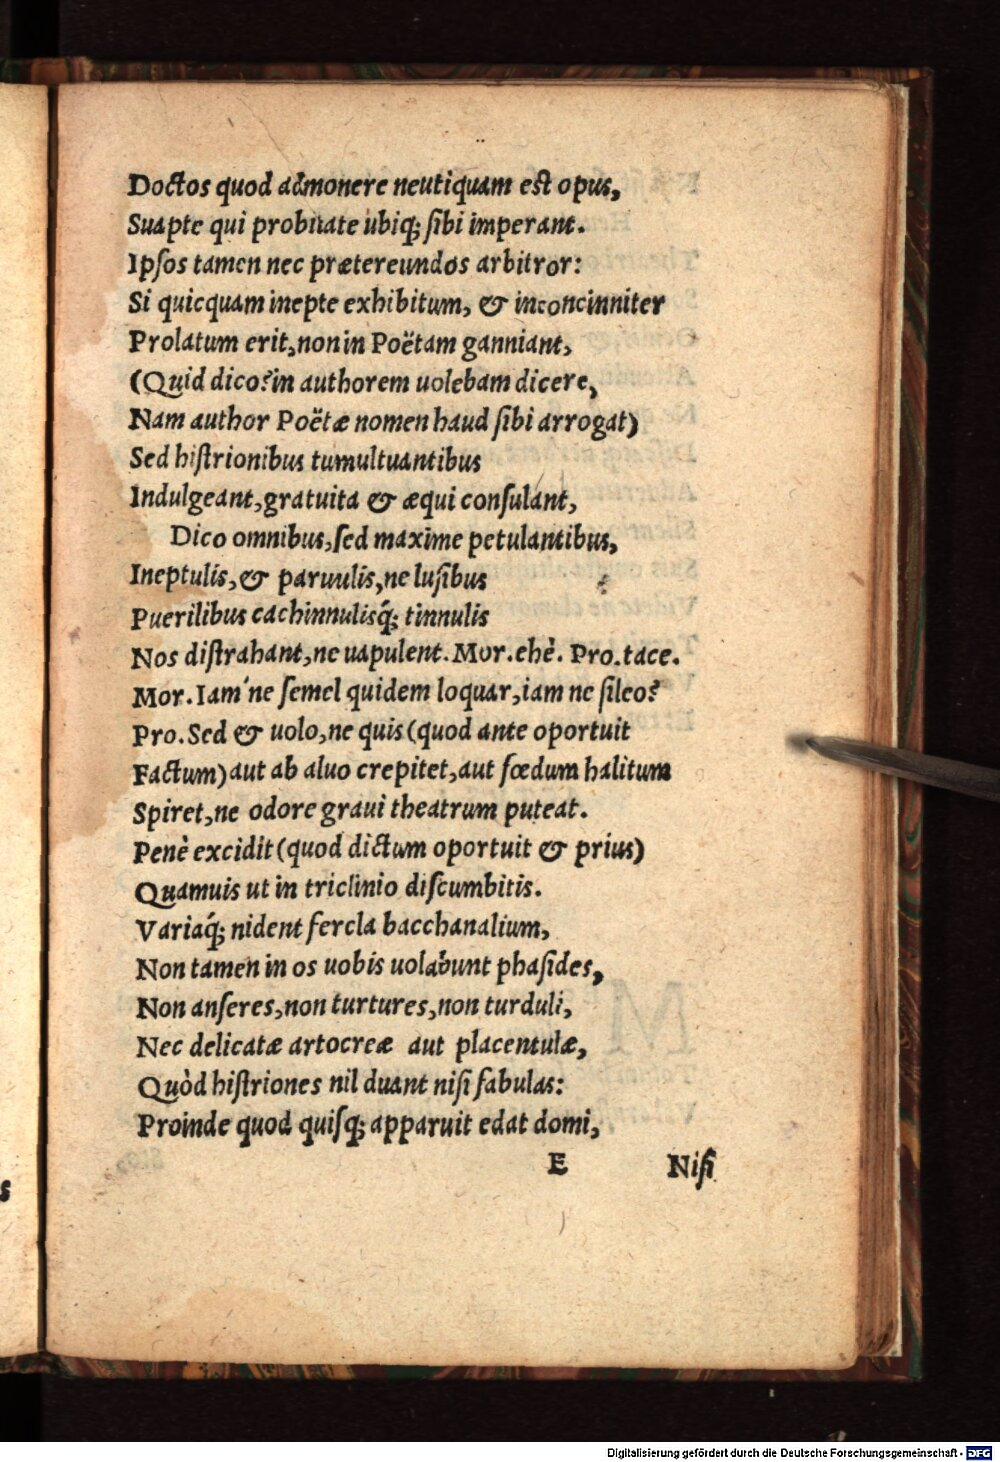 Doctos quod admonere neutiquam est opus,
Suapte qui probitate ubiq; sibi imperant.
Ipſos tamen nec prætereundos arbitror:
Si quicquam inepte exhibitum, & inconcinniter
Prolatum erit, non in Poëtam ganniant,
(Quid dico? in authorem uolebam dicere,
Nam author Poëtæ nomen haud ſibi arrogat)
Sed hiſtrionibus tumultuantibus
Indulgeant, gratuita & æqui conſulant,
Dico omnibus, ſed maxime petulantibus,
Ineptulis, & paruulis, ne luſibus
Puerilibus cachinnulisq́; tinnulis
Nos diſtrahant, ne uapulent. Mor. ehè. Pro. tace.
Mor. Iam'ne ſemel quidem loquar, iam ne ſileo?
Pro. Sed & uolo, ne quis (quod ante oportuit
Factum) aut ab aluo crepitet, aut fœdum halitum
Spiret, ne odore graui theatrum puteat.
Penè excidit (quod dictum oportuit & prius)
Quamuis ut in triclinio diſcumbitis.
Variaq́; nident fercla bacchanalium,
Non tamen in os uobis uolabunt phaſides,
Non anſeres, non turtures, non turduli,
Nec delicatæ artocreæ aut placentulæ,
Quòd hiſtriones nil duant niſi fabulas:
Proinde quod quiſq; apparuit edat domi,
E Niſi
s
Digitalisierung gefördert durch die Deutsche Forschungsgemeinschaft - DFG